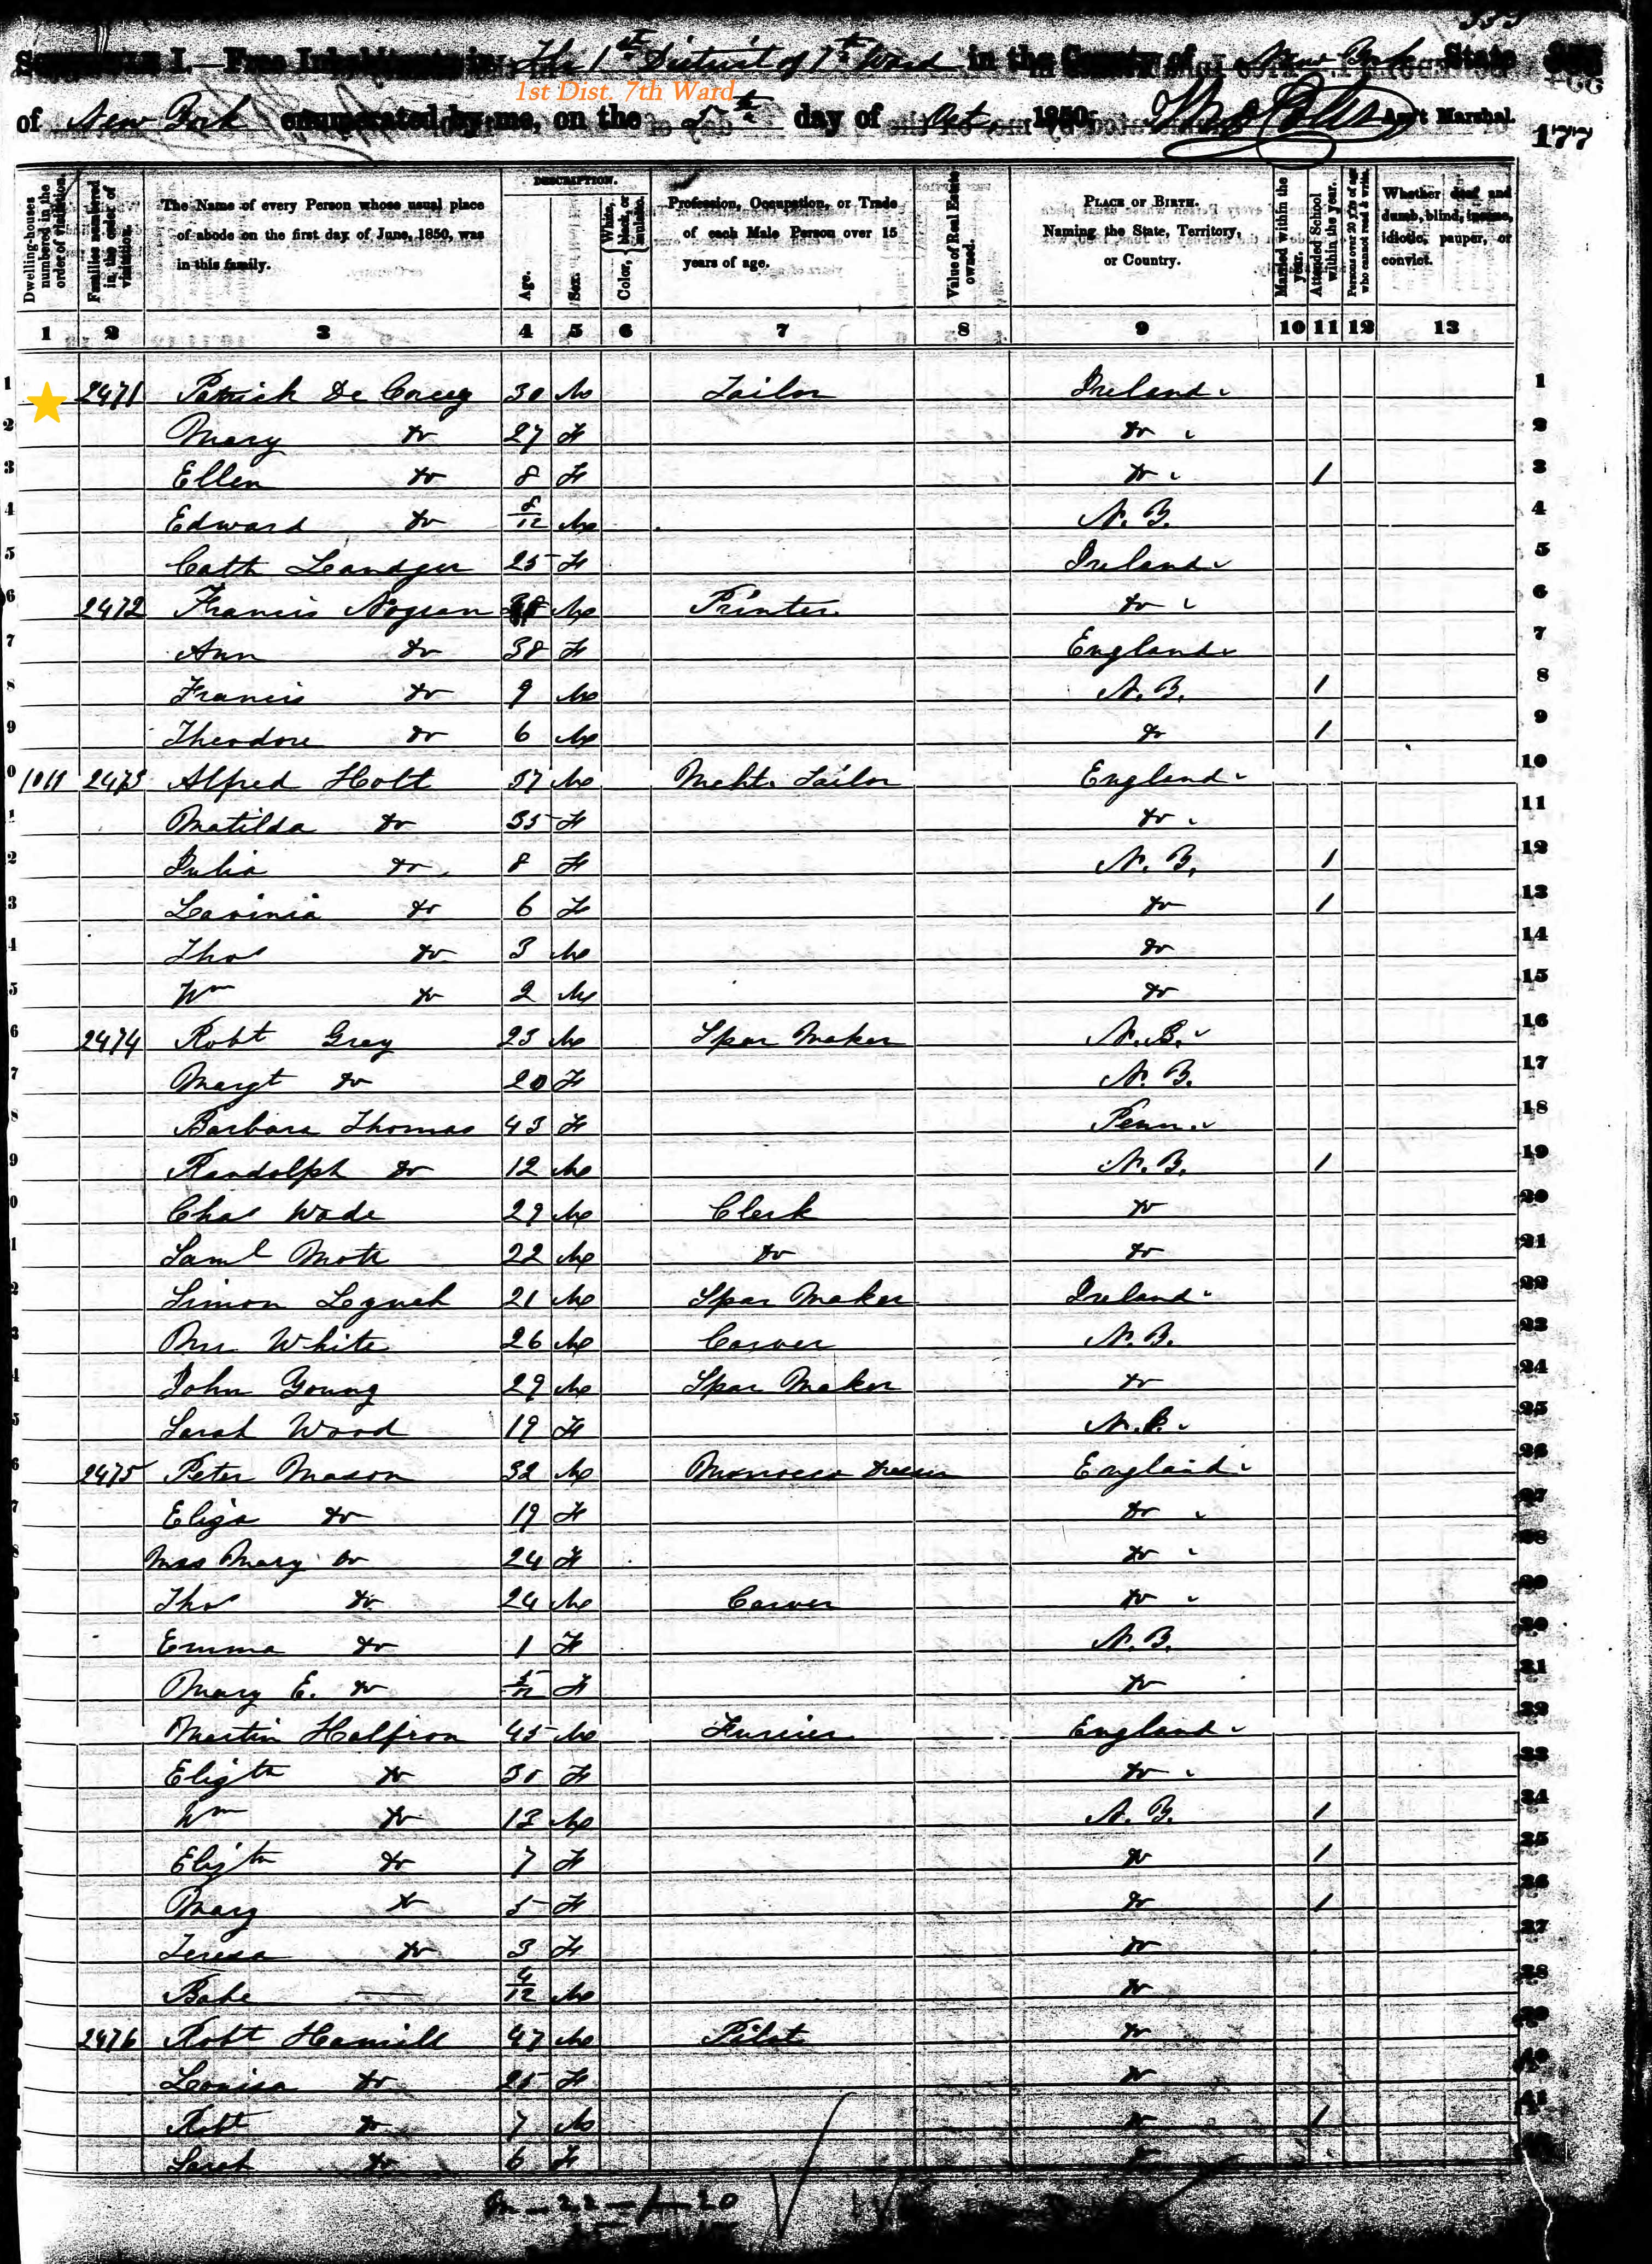 SCHEDULE I.—Free Inhabitants in The 1st District of 7th Ward in the County of New York State
1st Dist. 7th Ward
of New York enumerated by me, on the day of Oct. 1850. Ass't Marshal.
177
Dwelling-houses numbered in the order of visitation.
Families numbered in the order of visitation.
The Name of every Person whose usual place of abode on the first day of June, 1850, was in this family.
DESCRIPTION.
Age.
Sex.
Color, White, black, or mulatto.
Profession, Occupation, or Trade of each Male Person over 15 years of age.
Value of Real Estate owned.
PLACE OF BIRTH. Naming the State, Territory, or Country.
Married within the year.
Attended School within the year.
Persons over 20 y'rs of age who cannot read & write.
Whether deaf and dumb, blind, insane, idiotic, pauper, or convict.
1 2 3 4 5 6 7 8 9 10 11 12 13
1 2471 Patrick 30 M Tailor Ireland 1
2 Mary do 27 F do 2
3 Ellen do 8 F do 1 3
4 Edward do 8/12 M N. Y. 4
5 Cath 25 F Ireland 5
6 2472 Francis M Printer do 6
7 Ann do 38 F England 7
8 Francis do 9 M N. Y. 1 8
9 Theodore do 6 M do 1 9
2473 Alfred Holt 37 M Mcht. Tailor England 10
Matilda do 35 F do 11
Julia do 8 F N. Y. 1 12
Lavinia do 6 F do 1 13
Thos do 3 M do 14
Wm do 2 M do 15
2474 Robt Gray 23 M Spar Maker 16
Margt do 20 F N. Y. 17
Barbara Thomas 43 F Penn. 18
Randolph do 12 M N. Y. 1 19
Chas Wade 29 M Clerk do 20
Saml Mott 22 M do do 21
Simon Lynch 21 M Spar Maker Ireland 22
White 26 M Carver N. Y. 23
John Young 29 M Spar Maker do 24
Sarah Wood 19 F 25
2475 Peter Mason 32 M Morrocco Dresser England 26
Eliza do 19 F do 27
Mrs Mary do 24 F do 28
Thos do 24 M Carver do 29
Emma do 1 F N. Y. 30
Mary E. do 5/12 F do 31
Martin Halfron 45 M Furrier England 32
Elizth do 30 F do 33
Wm do 13 M N. Y. 1 34
Elizth do 7 F do 1 35
Mary do 5 F do 1 36
Teresa do 3 F do 37
Babe — 4/12 M do 38
2476 Robt Hamill 47 M Pilot do 39
Louisa do 25 F do 40
Robt do 7 M do 1 41
Sarah do 6 F